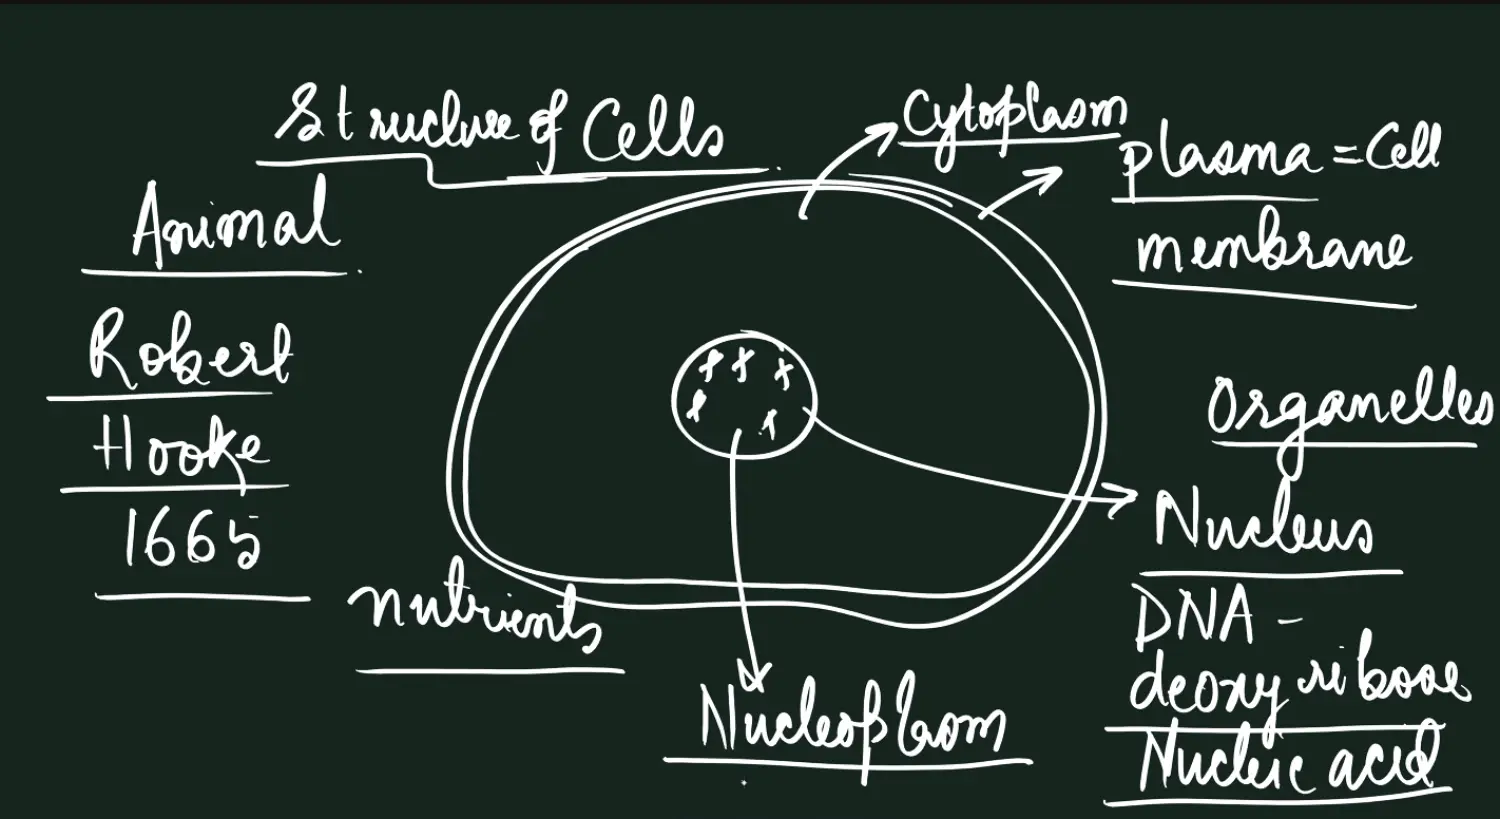 Structure of Cells
Cytoplasm
plasma = Cell
membrane
Animal
Robert
Hooke
1665
Organelles
Nucleus
DNA -
deoxy ribose
Nucleic acid
nutrients
Nucleoplasm